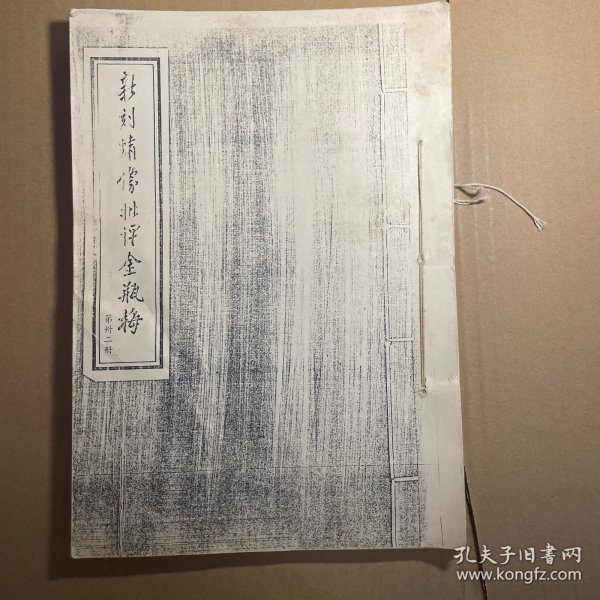 新刻绣像批评金瓶梅
第卅二册
孔夫子旧书网
www.kongfz.com